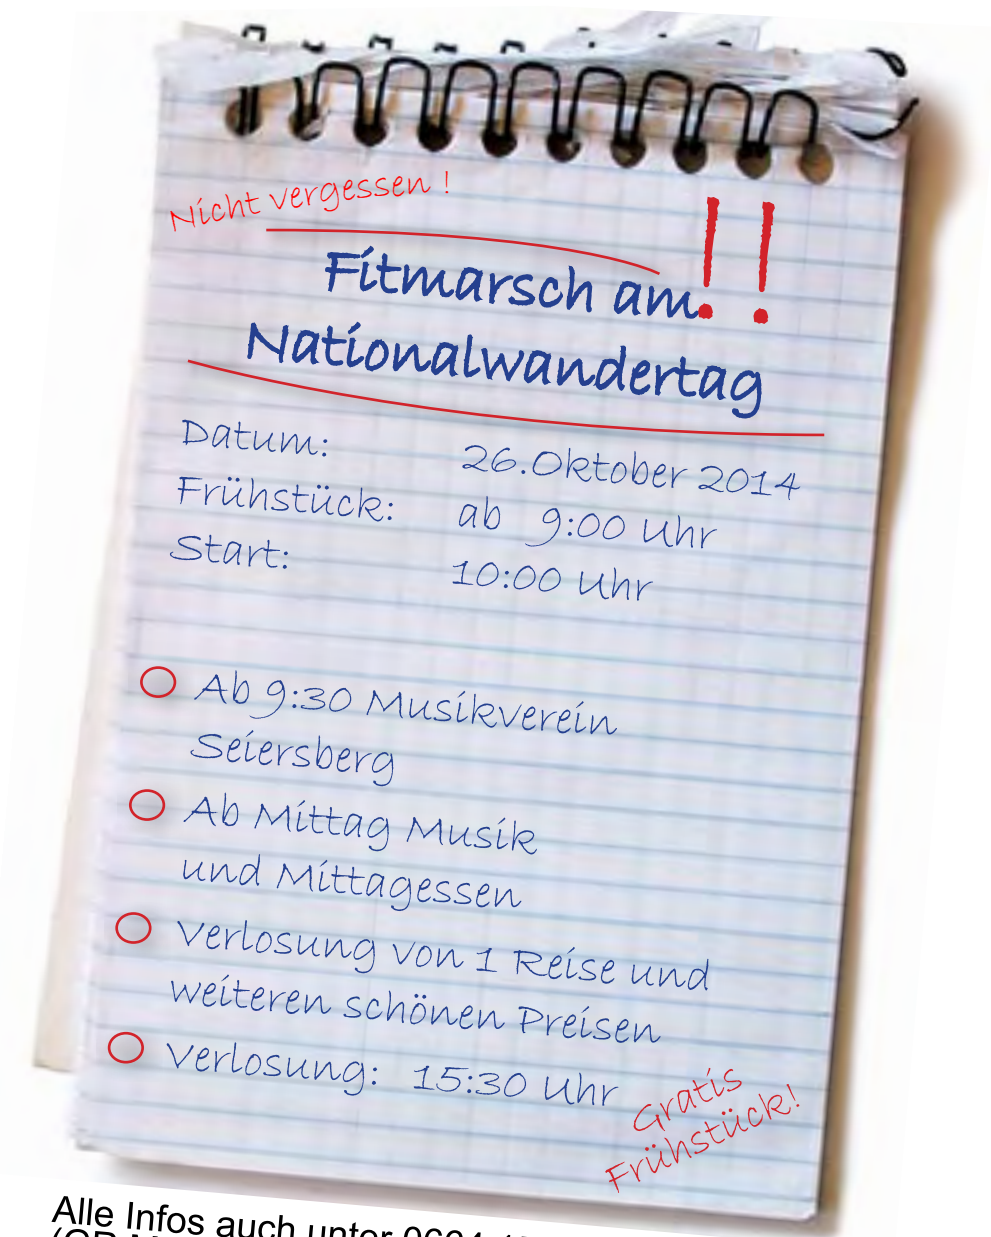 Nicht vergessen !
!!
Fitmarsch am
Nationalwandertag
Datum: 26.Oktober 2014
Frühstück: ab 9:00 Uhr
Start: 10:00 Uhr
Ab 9:30 Musikverein
Seiersberg
Ab Mittag Musik
und Mittagessen
Verlosung von 1 Reise und
weiteren schönen Preisen
Verlosung: 15:30 Uhr
Gratis
Frühstück!
Alle Infos auch unter